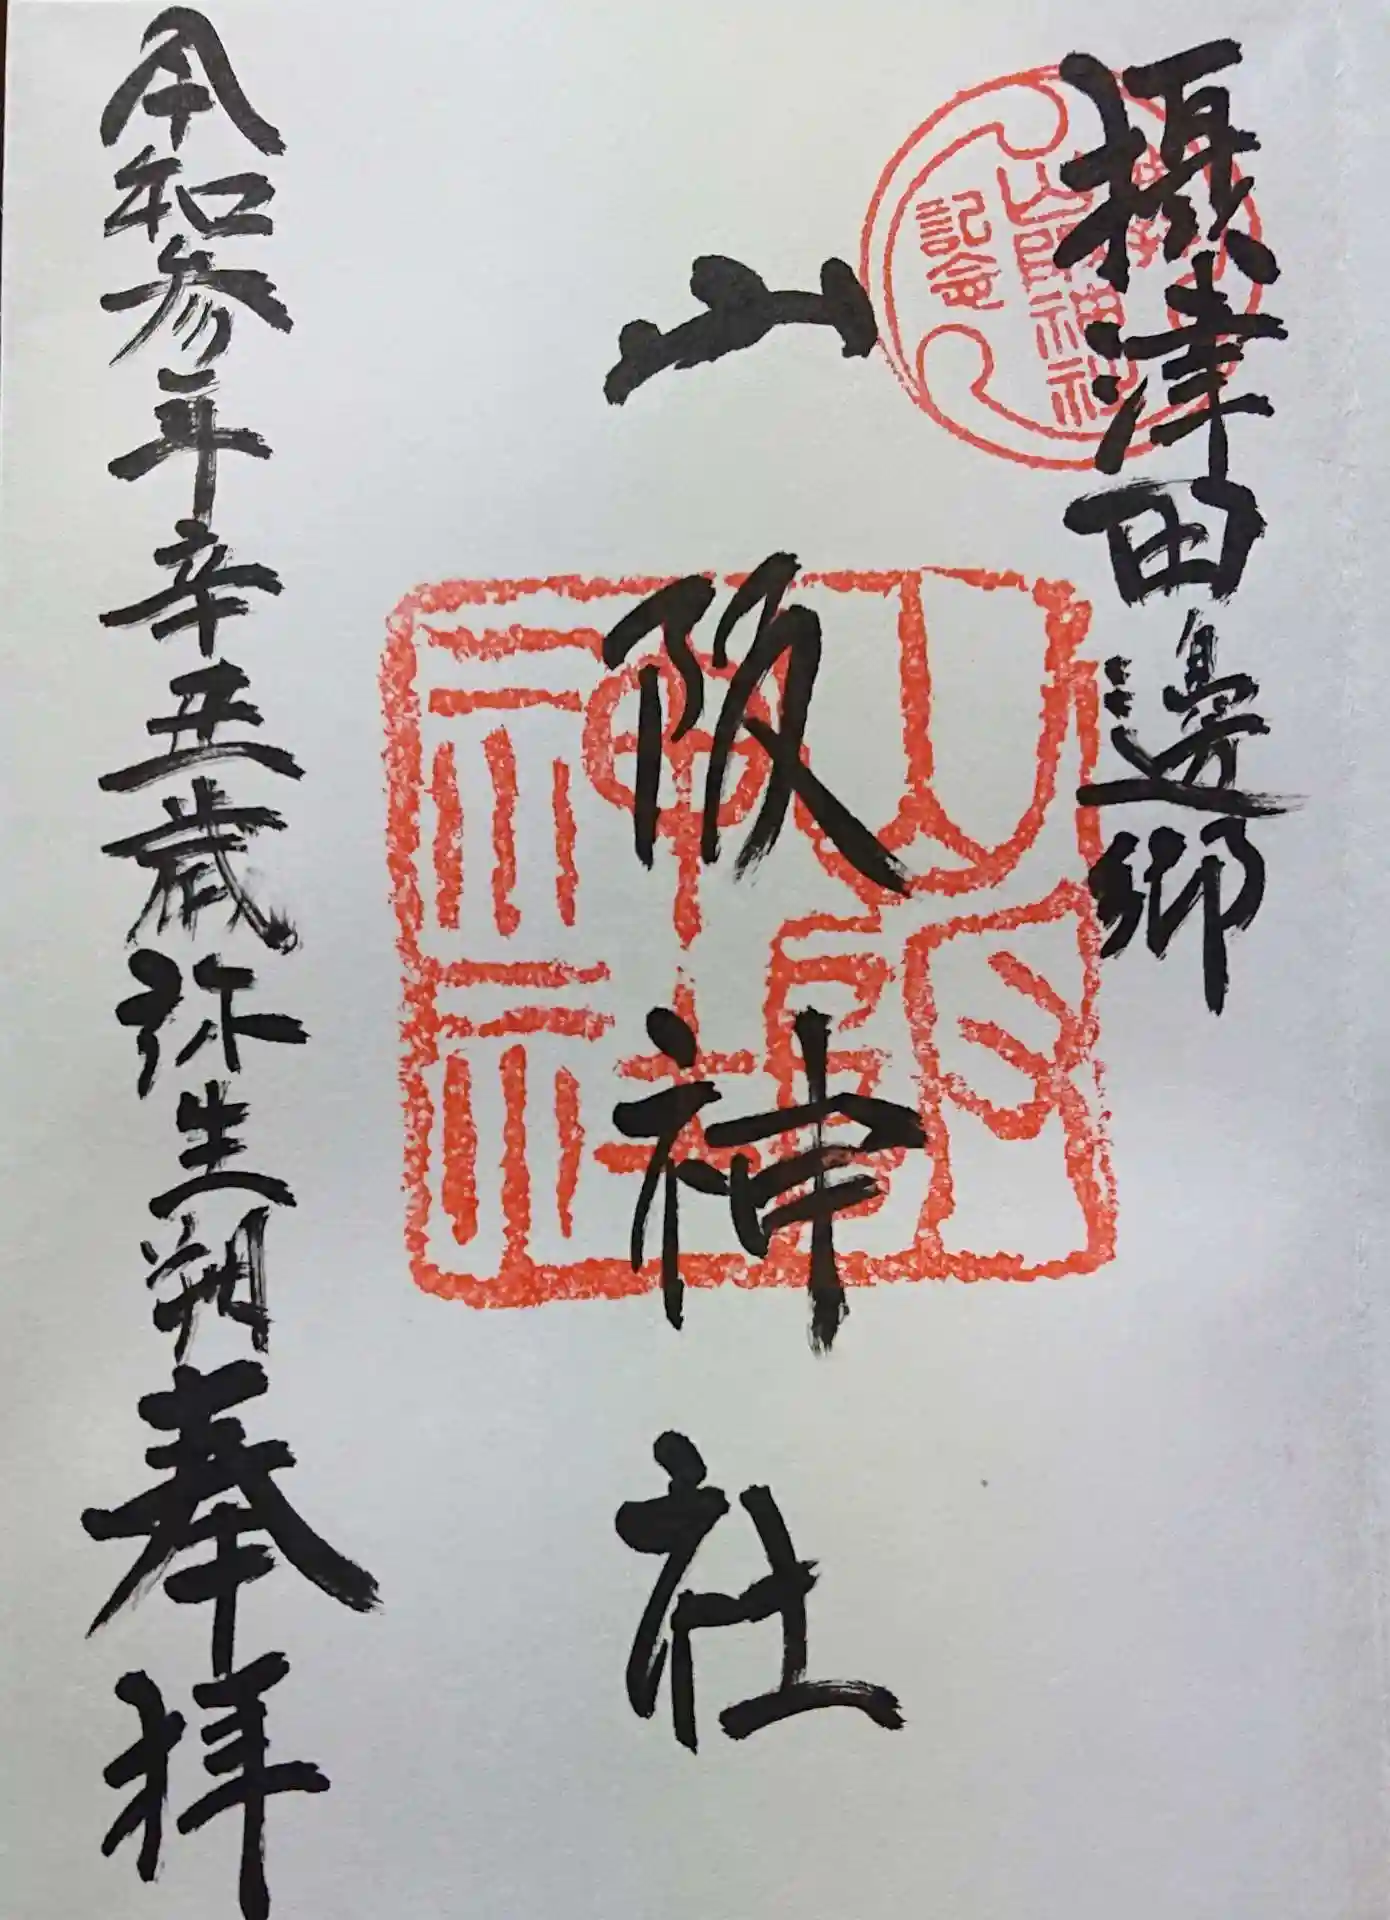 摂津田邊郷
山阪神社
令和参年辛丑歳弥生朔奉拝
山阪神社
記念
山阪神社